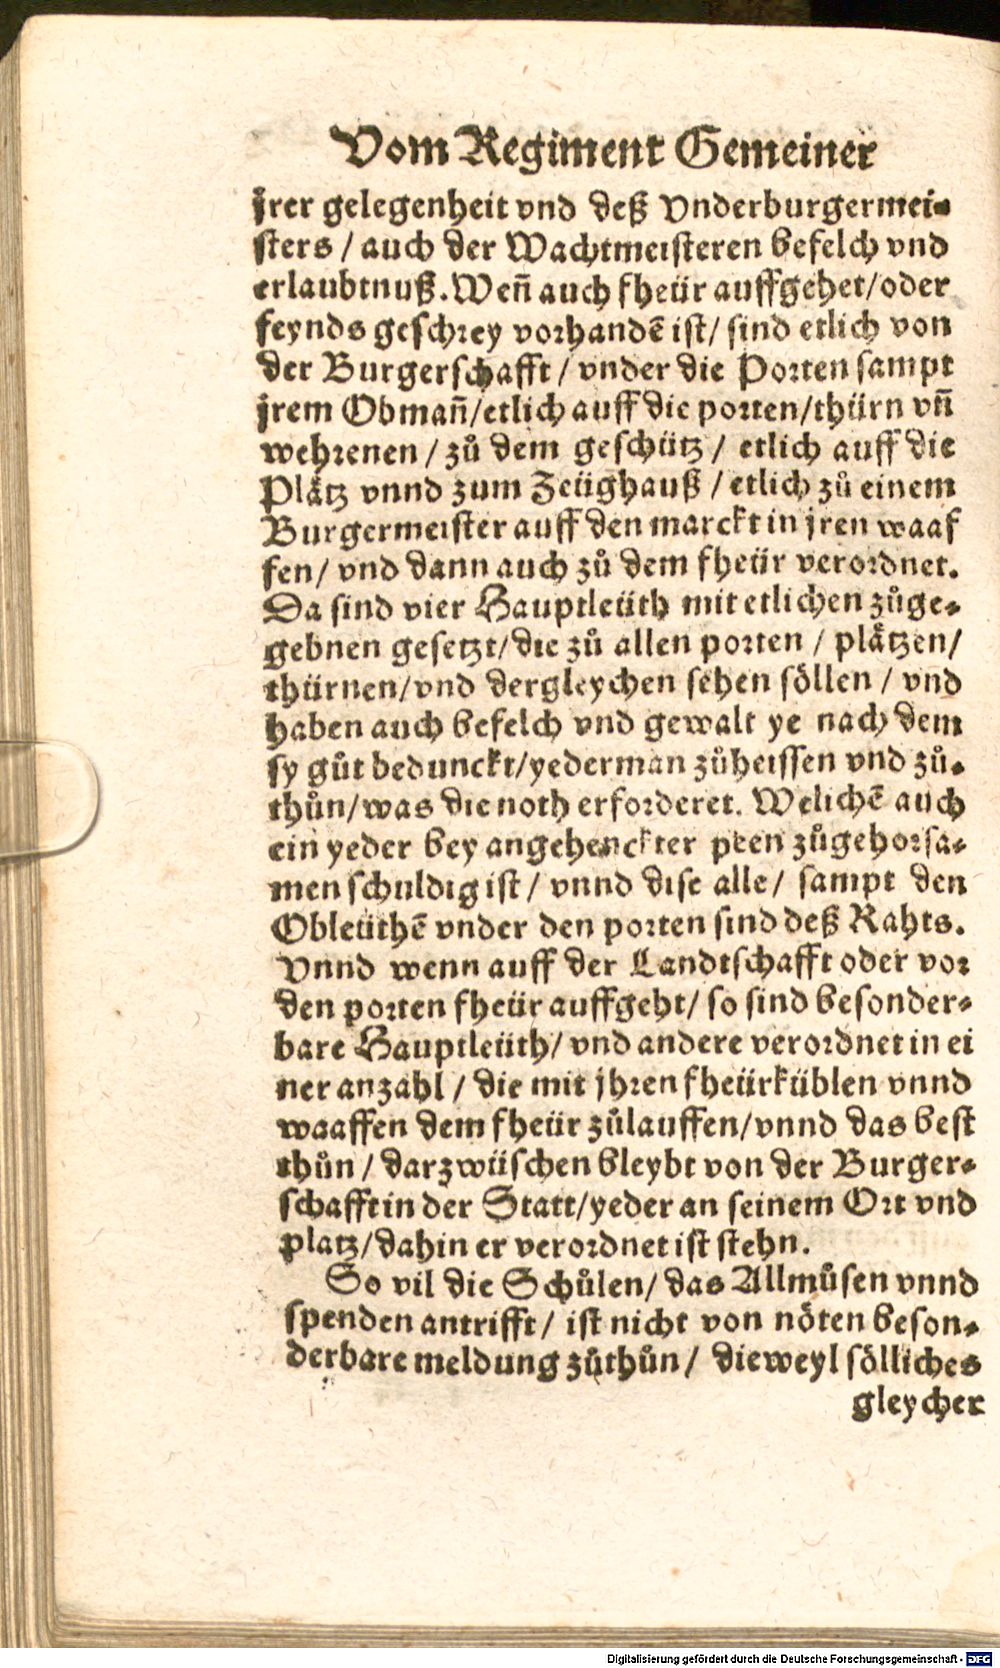 Vom Regiment Gemeiner
jrer gelegenheit vnd deß Vnderburgermei-
sters / auch der Wachtmeisteren befelch vnd
erlaubtnuß. Weñ auch fheür auffgehet/oder
feynds geschrey vorhandē ist/ sind etlich von
der Burgerschafft / vnder die Porten sampt
jrem Obmañ/etlich auff die porten/thürn vñ
wehrenen / zů dem geschütz / etlich auff die
Plåtz vnnd zum Zeüghauß / etlich zů einem
Burgermeister auff den marckt in jren waaf
fen/ vnd dann auch zů dem fheür verordnet.
Da sind vier Hauptleüth mit etlichen zůge-
gebnen gesetzt/die zů allen porten / plåtzen/
thürnen/vnd dergleychen sehen söllen / vnd
haben auch befelch vnd gewalt ye nach dem
sy gůt bedunckt/yederman zůheissen vnd zů-
thůn/was die noth erforderet. Welichē auch
ein yeder bey angehenckter peen zůgehorsa-
men schuldig ist / vnnd dise alle / sampt den
Obleüthē vnder den porten sind deß Rahts.
Vnnd wenn auff der Landtschafft oder vor
den porten fheür auffgeht/ so sind besonder-
bare Hauptleüth/ vnd andere verordnet in ei
ner anzahl / die mit jhren fheürküblen vnnd
waaffen dem fheür zůlauffen/vnnd das best
thůn / darzwüschen bleybt von der Burger-
schafft in der Statt/yeder an seinem Ort vnd
platz/dahin er verordnet ist stehn.
So vil die Schůlen/ das Allmůsen vnnd
spenden antrifft/ ist nicht von nöten beson-
derbare meldung zůthůn / dieweyl sölliches
gleycher
Digitalisierung gefördert durch die Deutsche Forschungsgemeinschaft - DFG